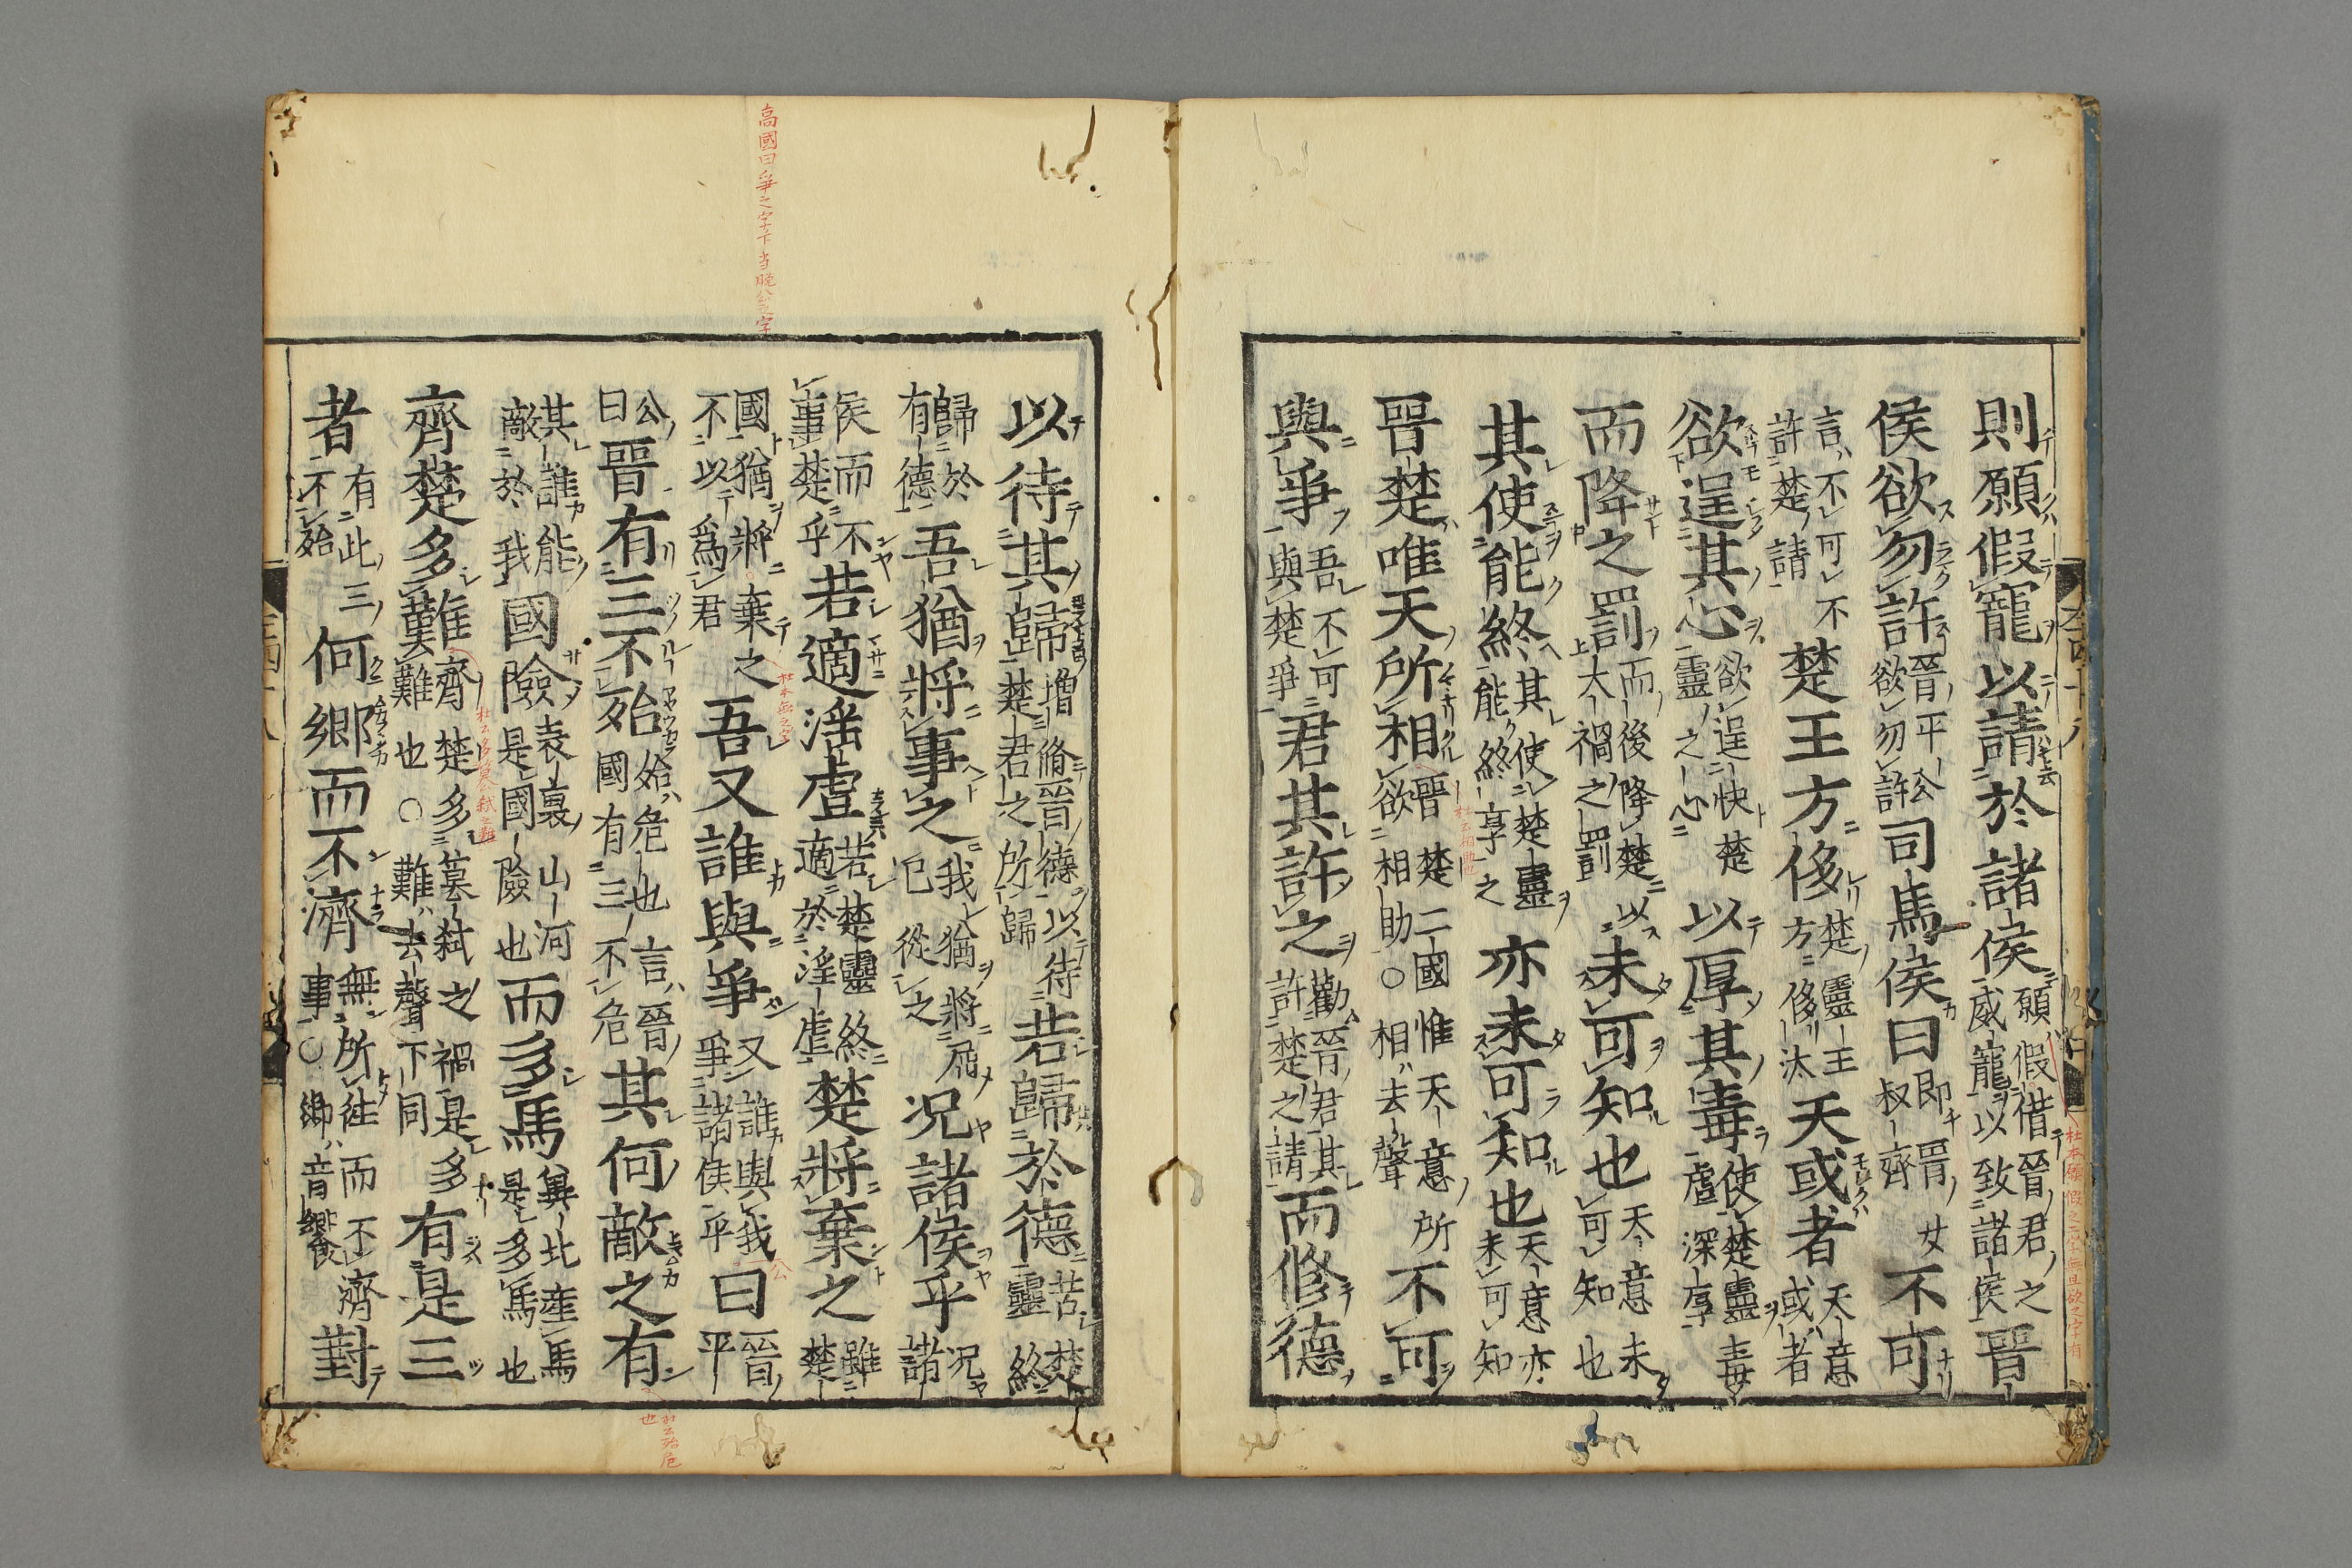 則願假寵以請於諸侯願假借晉君之威寵以致諸侯晉
侯欲勿許晉平公欲勿許司馬侯曰即晉女叔齊不可
言不可不許楚請楚王方侈楚靈王方侈汰天或者天意或者
欲逞其心欲逞快楚靈之心以厚其毒使楚靈毒虐深厚
而降之罰而後降楚以大禍之罰未可知也天意未可知也
其使能終其使楚靈能終享之亦未可知也天意亦未可知
晉楚唯天所相晉楚二國惟天意所欲相助○相去聲不可
與爭吾不可與楚爭君其許之勸晉君其許楚之請而修德
以待其歸增脩晉德以待楚君之所歸若歸於德若楚靈終
歸於有德吾猶將事之我猶將屈已從之况諸侯乎况諸
侯而不事楚乎若適淫虐若楚靈終適於淫虐楚將棄之雖楚
國猶將棄之不以爲君吾又誰與爭又誰與我爭諸侯乎曰晉平
公曰晉有三不殆殆危也言晉國有三不危其何敵之有
其誰能敵於我國險表裏山河是國險也而多馬冀北產馬是多馬也
齊楚多難齊楚多篡弑之禍是多難也○難去聲下同有是三
者有此三不殆何鄉而不濟無所往而不濟事○鄉音嚮對
高國曰爭之字下当脱公之字
杜本無之字
公
杜云殆危也